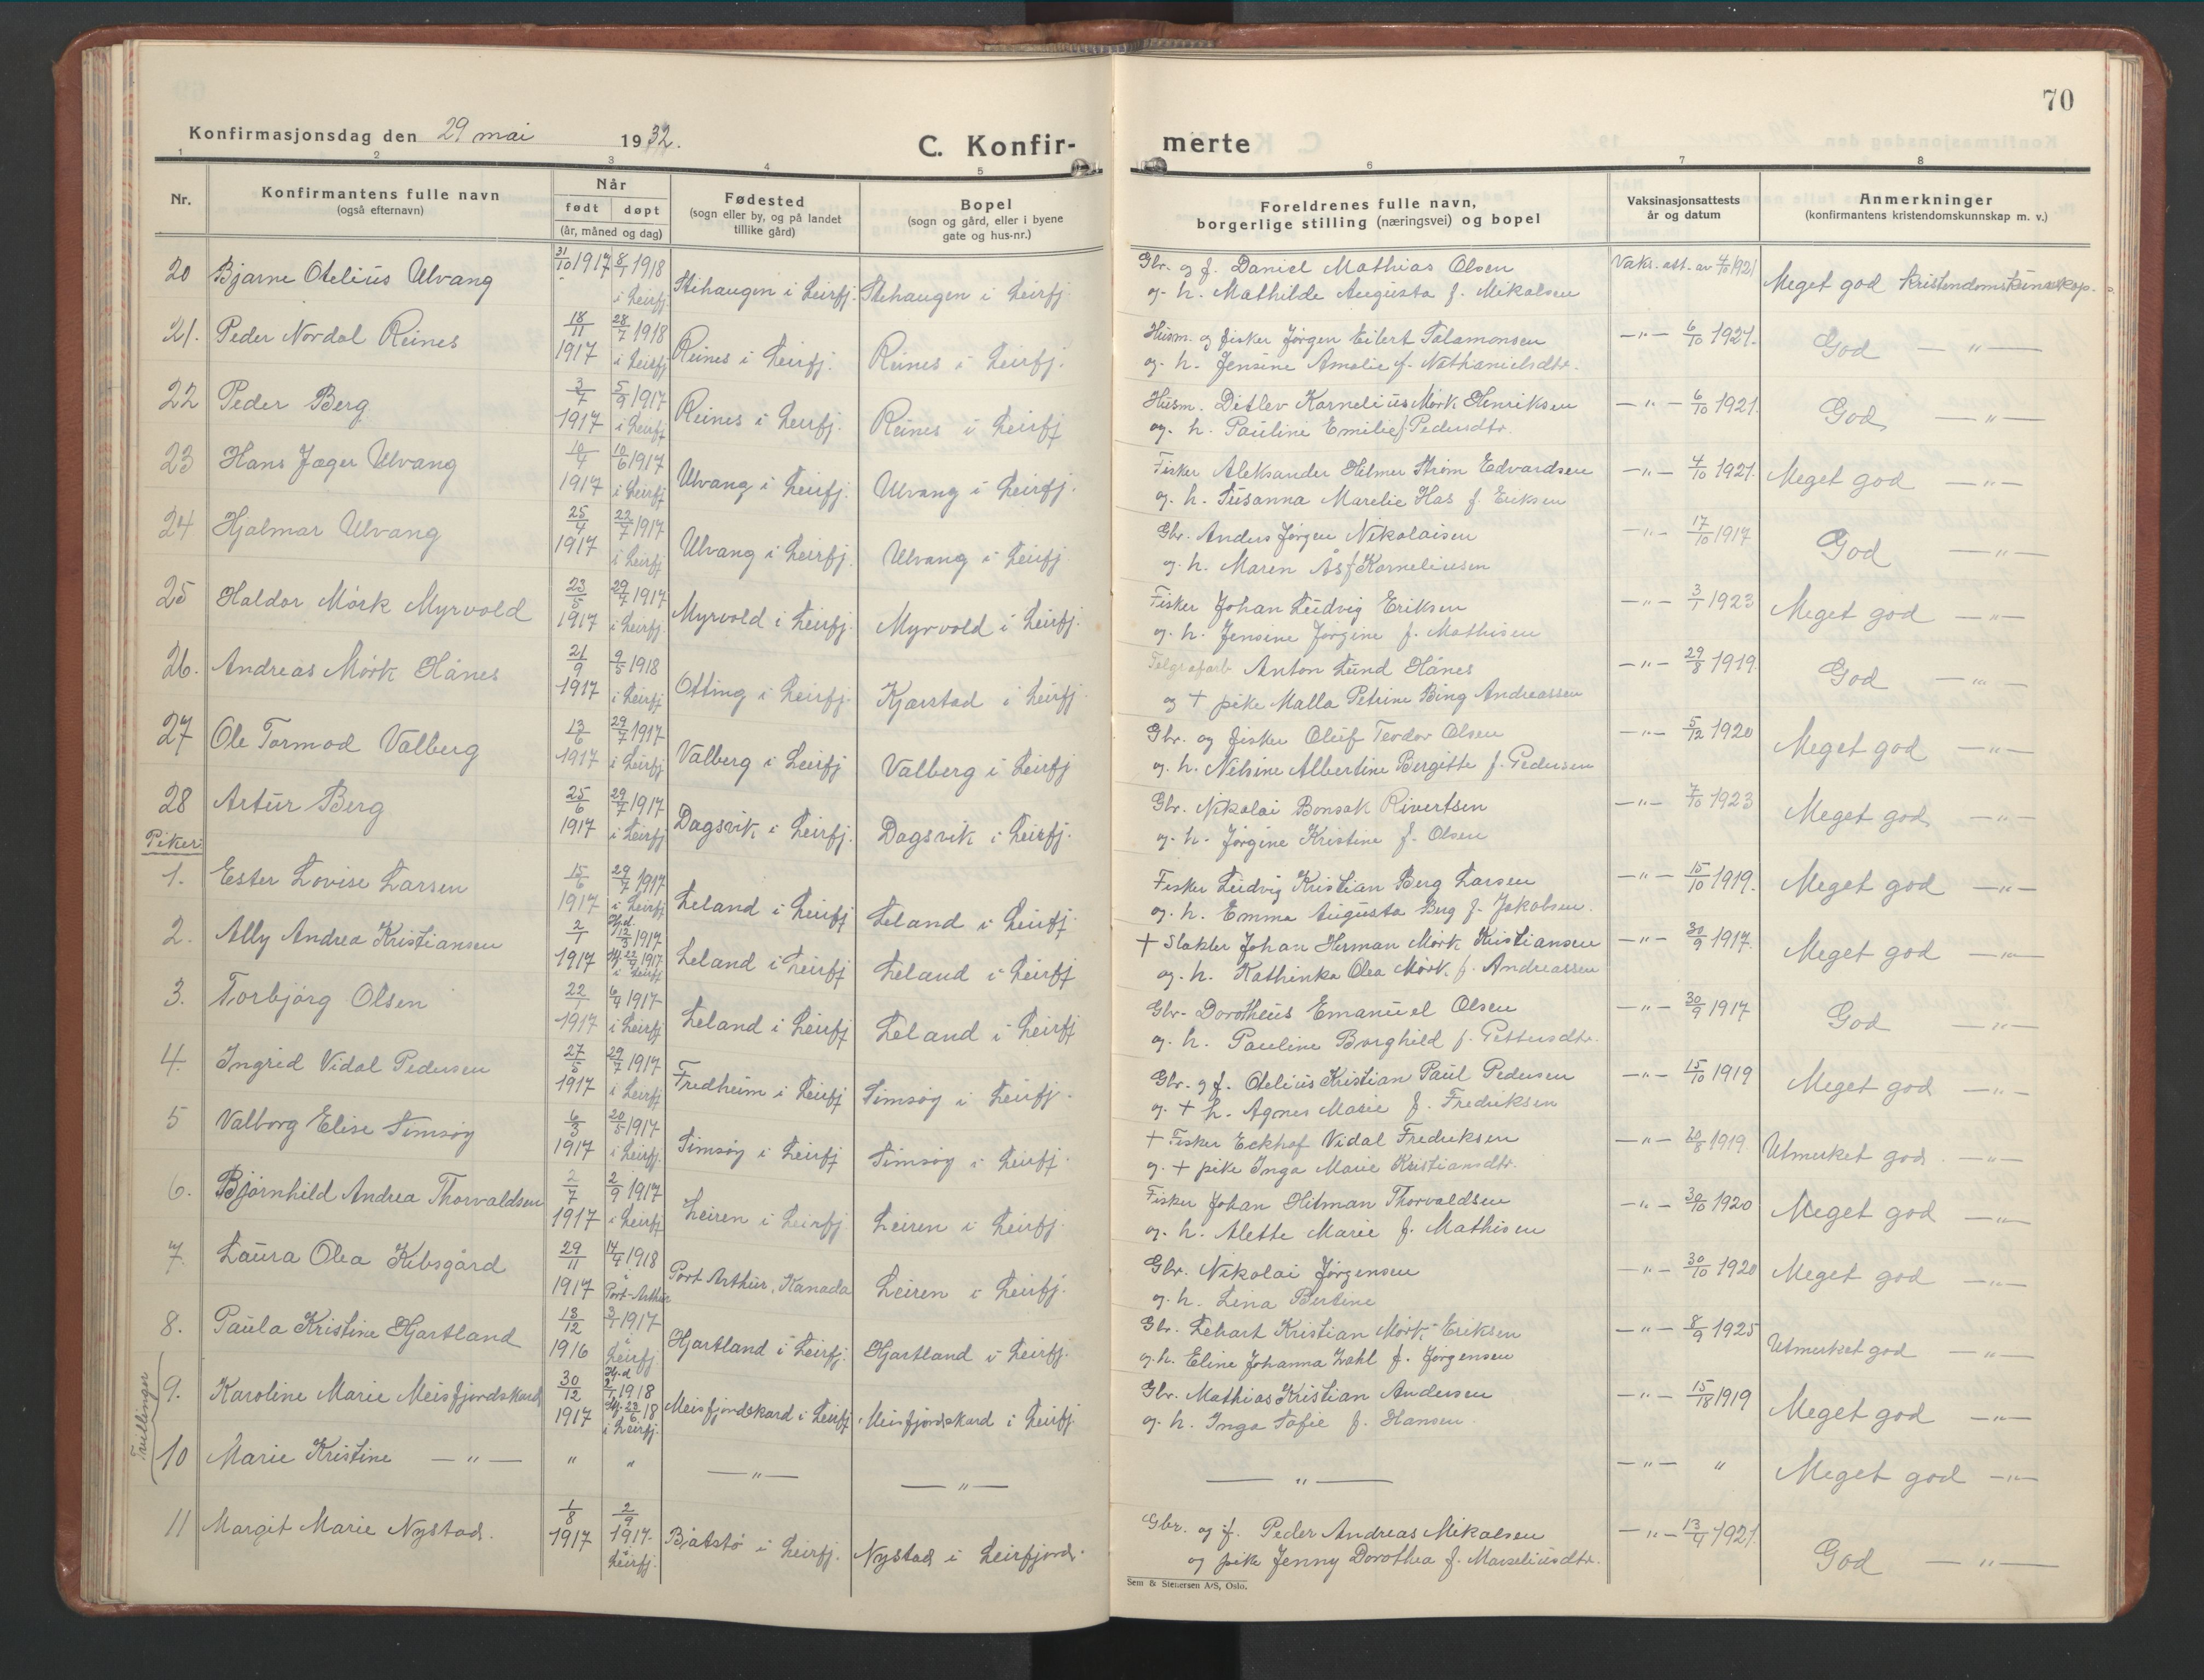 70
Konfirmasjonsdag den 29 mai 1932.
C. Konfir-
merte
1 2 3 4 5 6 7 8
Nr.
Konfirmantens fulle navn
(også efternavn)
Når
født døpt
(år, måned og dag)
Fødested
(sogn eller by, og på landet
tillike gård)
Bopel
(sogn og gård, eller i byene
gate og hus-nr.)
Foreldrenes fulle navn,
borgerlige stilling (næringsvei) og bopel
Vaksinasjonsattests
år og datum
Anmerkninger
(konfirmantens kristendomskunnskap m. v.)
20 Bjarne Otelius Ulvang 31/10 1917 8/1 1918 i Leirfj. Stihaugen i Leirfj. Stehaugen i Leirfj.
Gbr. og f. Daniel Mathias Olsen Vaks. att. av 4/10 1921 Meget god Kristendomskunnskap.
og h. Mathilde Augusta f. Mikalsen
21. Peder Nordal Reines 18/11 1917 28/7 1918 i Leirfj Reines i Leirfj. Reines i Leirfj.
Husm. og fisker Jørgen Eilert Salamonsen —"— 6/10 1921. God —"—
og h. Jensine Amalie f. Nathanielsdtr.
22 Peder Berg 3/7 1917 5/9 1917 i Leirfj Reines i Leirfj. Reines i Leirfj
Husm. Ditlev Kornelius Mørk Henriksen —"— 6/10 1921. God —"—
og h. Pauline Emilie f. Pedersdtr.
23 Hans Jæger Ulvang 10/4 1917 10/6 1917 i Leirfj Ulvang i Leirfj. Ulvang i Leirfj.
Fisker Aleksander Hilmer Strøm Edvardsen —"— 4/10 1921. Meget god —"—
og h. Susanna Marelie Has f. Eriksen
24 Hjalmar Ulvang 25/4 1917 22/7 1917 i Leirfj Ulvang i Leirfj. Ulvang i Leirfj
Gbr. Anders Jørgen Nikolaisen —"— 17/10 1917 God —"—
og h. Maren Ås f. Korneliusen
25 Haldor Mørk Myrvold 23/5 1917 29/7 1917 i Leirfj. Myrvold i Leirfj. Myrvold i Leirfj.
Fisker Johan Ludvig Eriksen —"— 3/1 1923 Meget god —"—
og h. Jensine Jørgine f. Mathisen
26. Andreas Mørk Hånes 21/9 1917 9/5 1918 i Leirfj Otting i Leirfj. Kjærstad i Leirfj
Telgrafarb Anton Lund Hånes —"— 29/8 1919. God —"—
og + pike Malla Petrine Bing Andreassen
27 Ole Tormod Valberg 13/6 1917 29/7 1917 i Leirfj Valberg i Leirfj Valberg i Leirfj
Gbr. og fisker Oluf Teodor Olsen —"— 5/12 1920 Meget god —"—
og h. Nilsine Albertine Bergitte f. Pedersen
28 Artur Berg 25/6 1917 29/7 1917 i Leirfj Dagsvik i Leirfj. Dagsvik i Leirfj.
Gbr. Nikolai Bonsak Rivertsen —"— 7/10 1923 Meget god —"—
og h. Jørgine Kristine f. Olsen
Piker:
1. Ester Lovise Larsen 15/6 1917 29/7 1917 i Leirfj Leland i Leirfj Leland i Leirfj.
Fisker Ludvig Kristian Berg Larsen —"— 15/10 1919. Meget god —"—
og h. Emma Augusta Berg f. Jakobsen.
2. Ally Andrea Kristiansen 2/1 1917 Hj.d 12/3 1917 1917 i Leirfj Leland i Leirfj Leland i Leirfj
+ Slakter Johan Herman Mørk Kristiansen —"— 30/9 1917. Meget god —"—
og h. Kathinka Olea Mørk f. Andreassen
3. Torbjørg Olsen 22/1 1917 6/4 1917 i Leirfj Leland i Leirfj Leland i Leirfj
Gbr. Dorotheus Emanuel Olsen —"— 30/9 1917 God —"—
og h. Pauline Borghild f. Pettersdtr.
4. Ingrid Vidal Pedersen 27/5 1917 29/7 1917 i Leirfj Fredheim i Leirfj Simsøy i Leirfj.
Gbr. og f. Otelius Kristian Paul Pedersen —"— 15/10 1919 Meget god —"—
og + h. Agnes Marie f. Fredriksen
5 Valborg Elise Simsøy 6/3 1917 20/5 1917 i Leirfj. Simsøy i Leirfj Simsøy i Leirfj.
+ Fisker Eckhof Vidal Fredriksen —"— 20/8 1919. Utmerket god —"—
og + pike Inga Marie Kristiansdtr.
6. Bjørnhild Andrea Thorvaldsen 2/7 1917 2/9 1917 i Leirfj Leiren i Leirfj. Leiren i Leirfj.
Fisker Johan Hitman Thorvaldsen —"— 30/10 1920 Meget god —"—
og h. Alette Marie f. Mathisen
7. Laura Olea Kibsgård 29/11 1917 14/4 1918 i Port-Arthur Port Arthur, Kanada Leiren i Leirfj.
Gbr. Nikolai Jørgensen —"— 30/10 1920 Meget god —"—
og h. Lina Bertine
8. Paula Kristine Hjartland 13/12 1916 3/1 1917 i Leirfj Hjartland i Leirfj. Hjartland i Leirfj.
Gbr. Lehart Kristian Mørk Eriksen —"— 8/9 1925 Utmerket god —"—
og h. Eline Johanna Zahl f. Jørgensen
Tvillinger
9. Karoline Marie Meisfjordskard 30/12 1917 Hj.d 1918 23/6 18 i Leirfj. Meisfjordskard i Leirfj. Meisfjordskard i Leirfj
Gbr. Mathias Kristian Andersen —"— 15/18 1919 Meget god —"—
og h. Inga Sofie f. Hansen
10 Marie Kristine —"— " " —"— —"—
—"— —"— " Meget god —"—
11 Margit Marie Nystad. 1/8 1917 2/9 1917. i Leirfj. Båtstø i Leirfj. Nystad i Leirfjord.
Gbr. og f. Peder Andreas Mikalsen —"— 13/4 1921. God —"—
og pike Jenny Dorothea f. Marseliusdtr.
Sem & Stenersen A/S, Oslo.